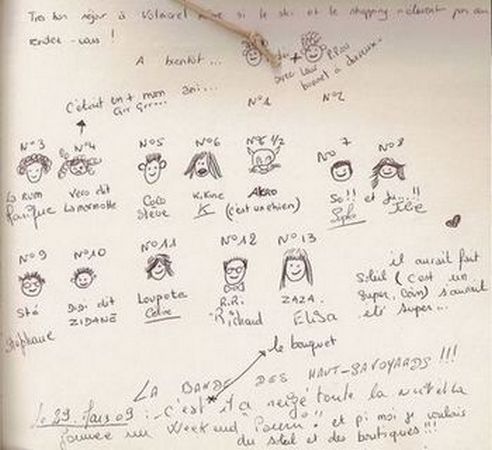 Très bon séjour à Valmorel même si le ski et le shopping n'étaient pas au
rendez-vous !
A bientôt...
avec leur
bonnet à
C'était un + mon ami...
Grr Grr...
N°1 N°2
N°3 N°4 N°5 N°6 N°6 1/2 N°7 N°8
La RUM Vero dit Coco Kikine AKRO So!! et Ju...!!
la marmotte Steve K (c'est un chien) Sophie Julie
N°9 N°10 N°11 N°12 N°13
Sté Didi dit Loupote R.R. ZAZA.
Stéphane ZIDANE Celine Richard Elisa
il aurait fait
soleil (c'est un
super coin) ç'aurait
été super...
le bouquet
LA BANDE DES HAUT-SAVOYARDS !!!
Le 29. Mars 09 : c'est il a neigé toute la nuit et la
journée un Week end "Pourri" !! et pi moi je voulais
du soleil et des boutiques !!!